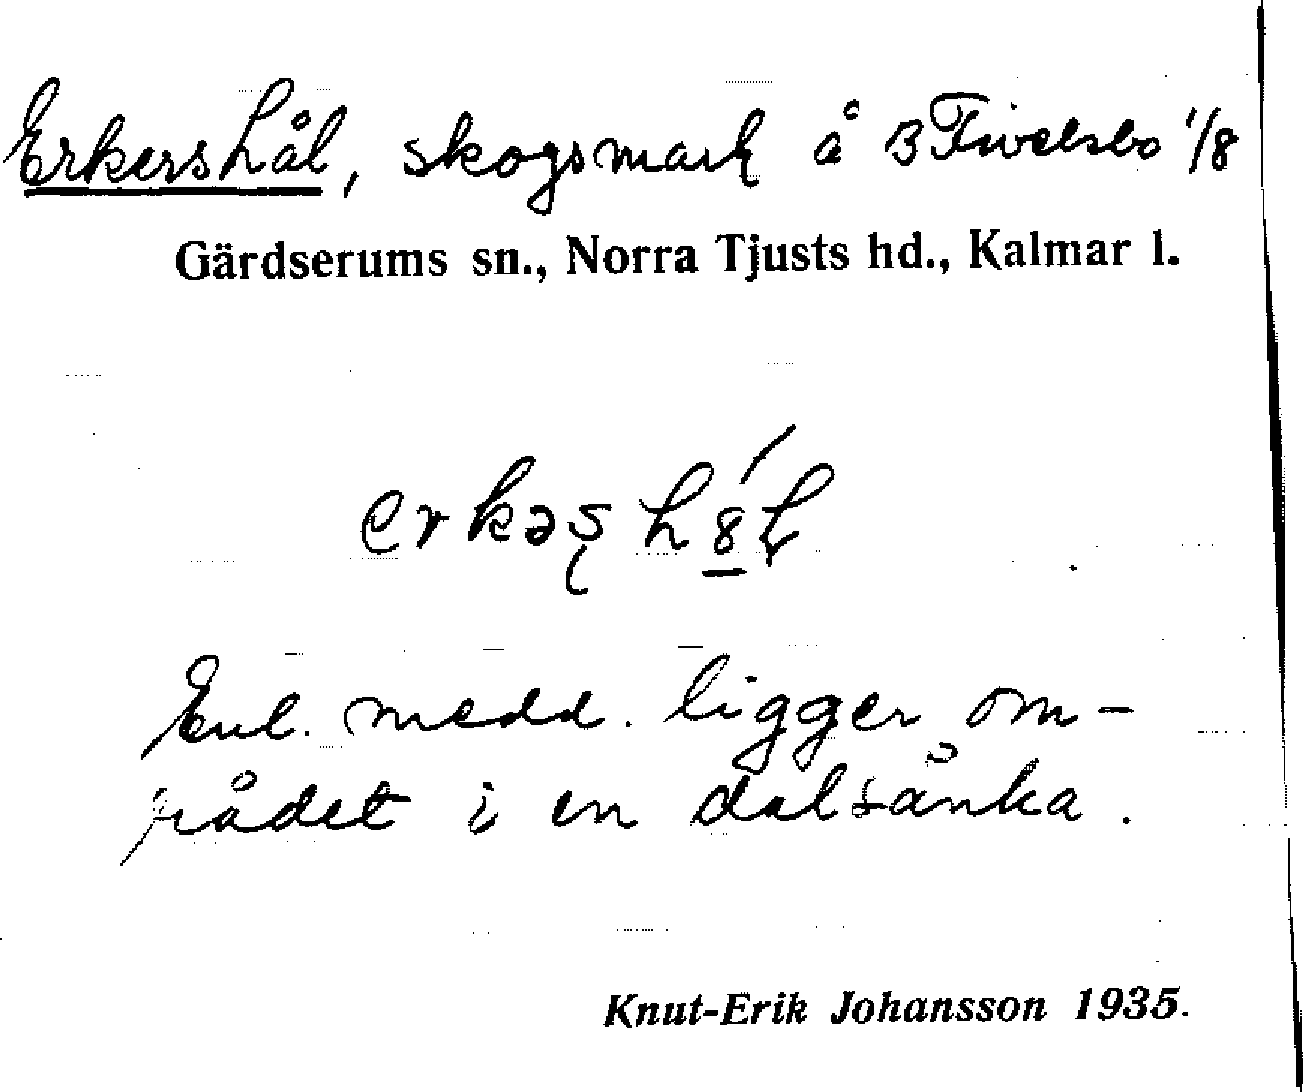 Erkershål, skogsmark å B Tivelsbo 1/8
Gärdserums sn., Norra Tjusts hd., Kalmar l.
Enl. medd. ligger om-
rådet i en dalsänka.
Knut-Erik Johansson 1935.